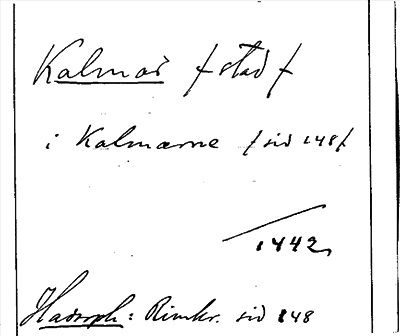 Kalmar /stad/
i Kalmarne /sid 148/
1442,
Hadorph: Rimkr. sid 148